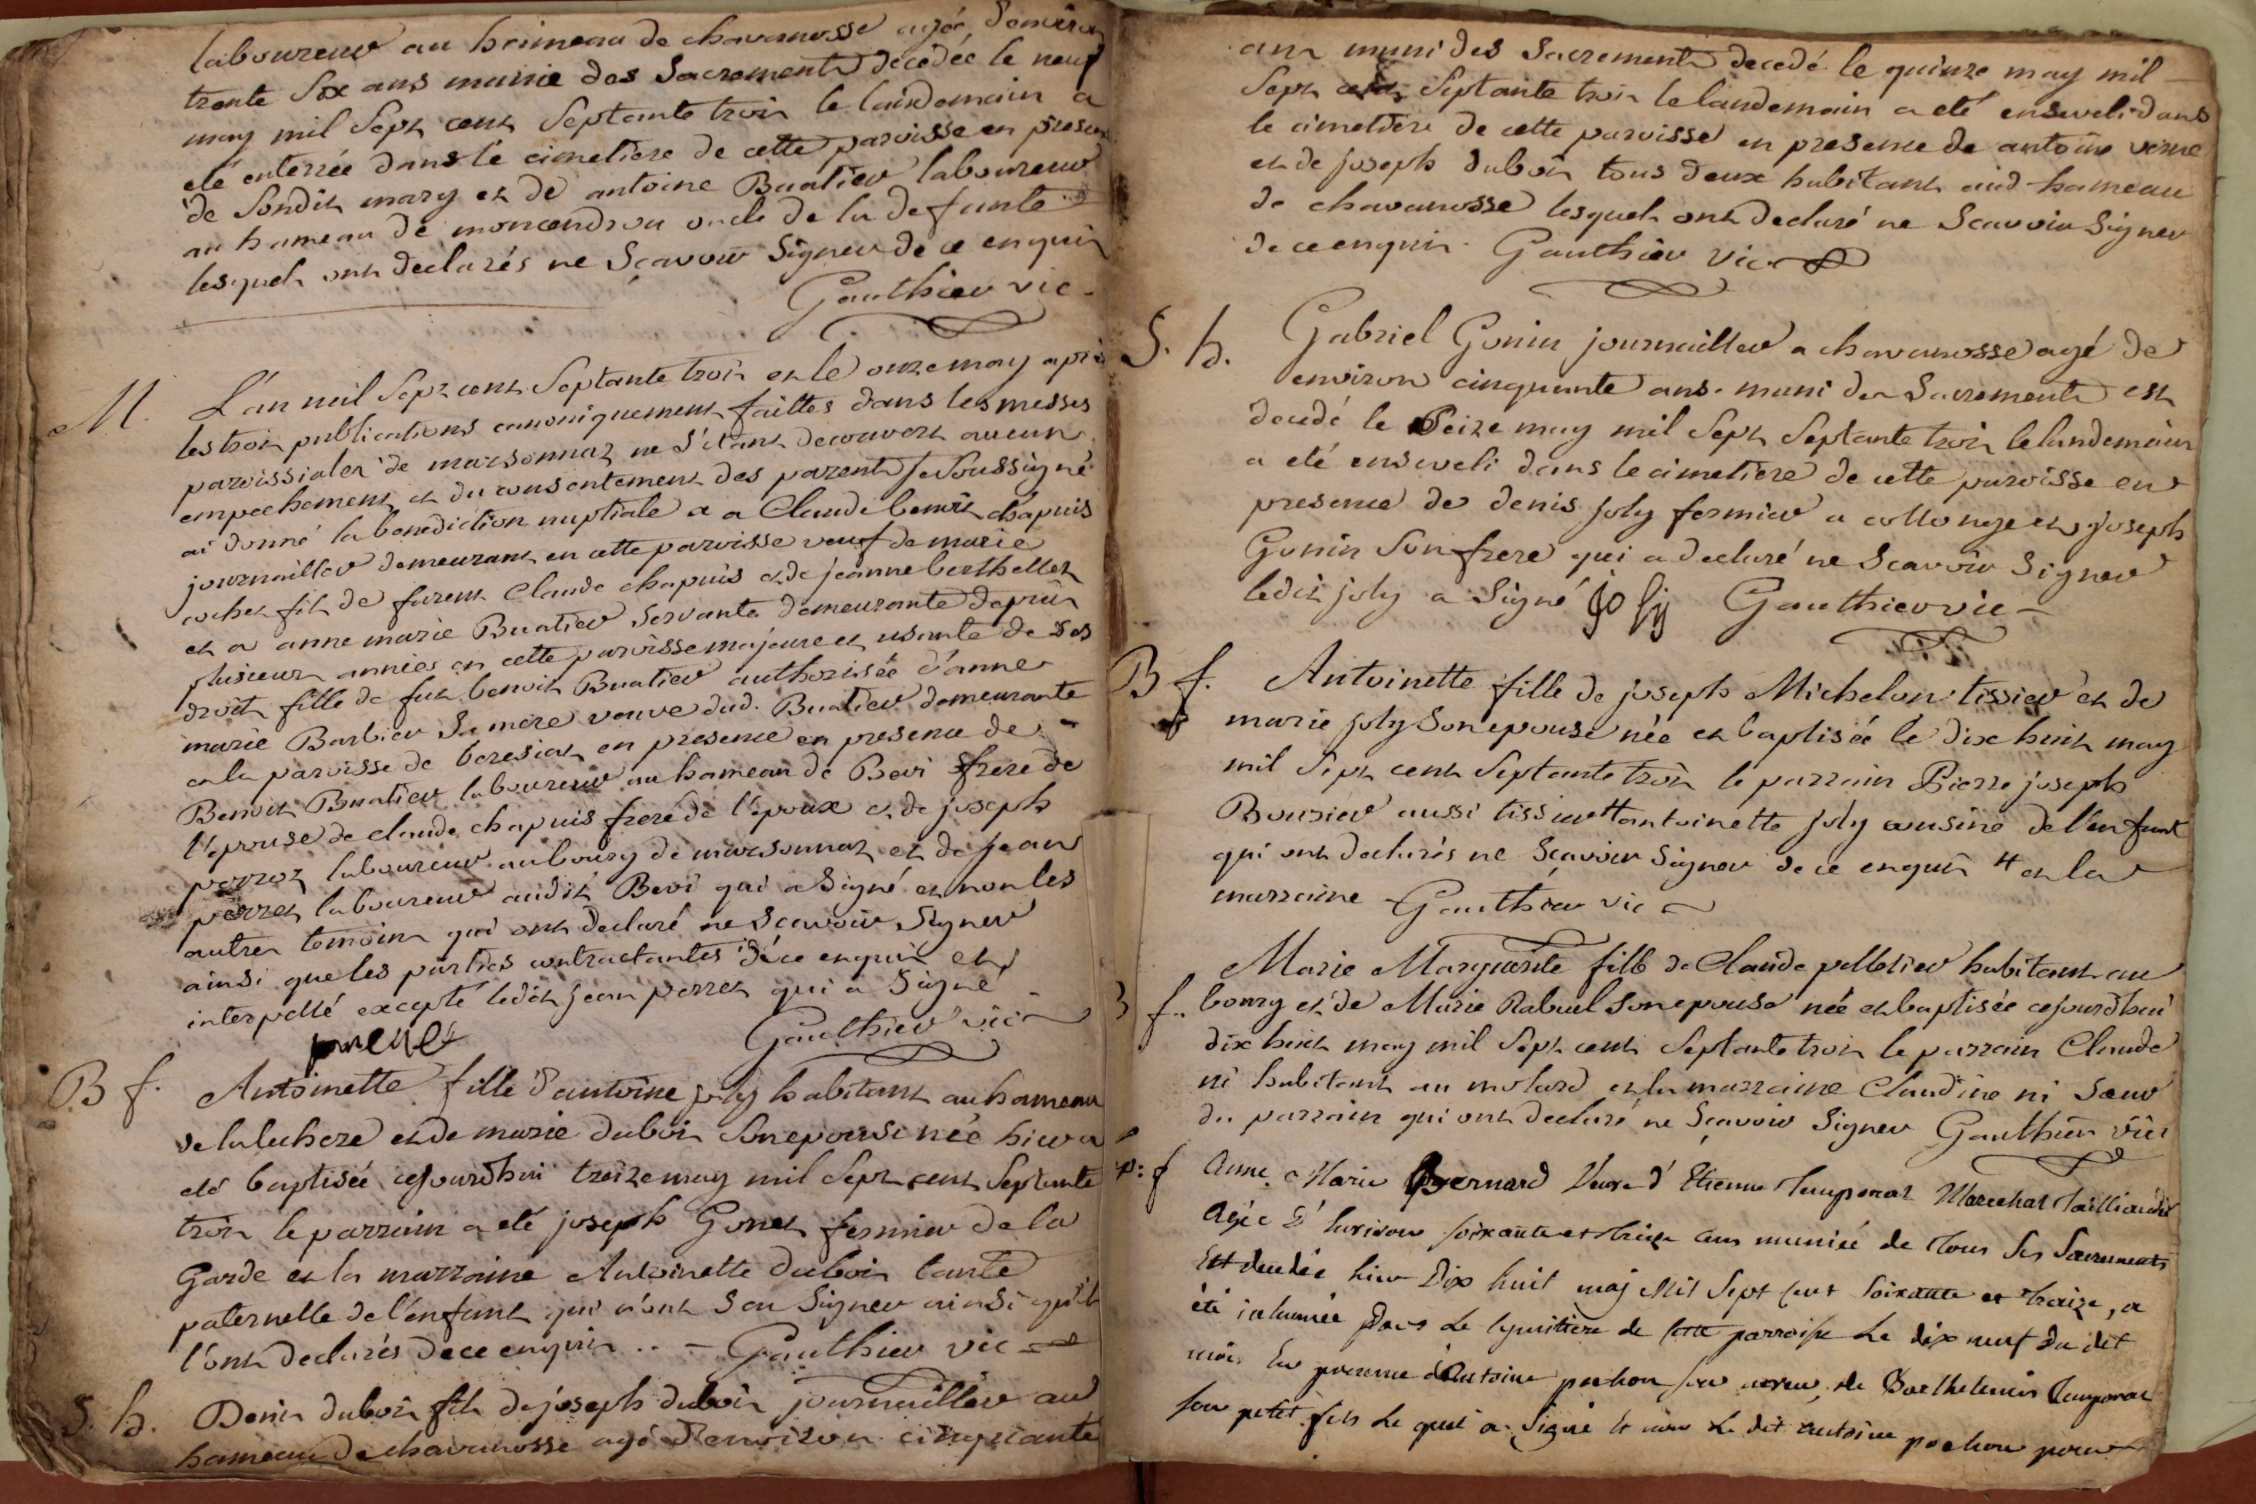 laboureur au haimeau de chavanosse agée d'environ
trente six ans munie des Sacrements decedée le neuf
may mil Sept cent Septante trois le laindemain a
eté enterrée dans le cimetiere de cette paroisse en presence
de Sondit mary et de antoine Buatier laboureur
au hameau de moncendrou oncle de la defunte
lesquels ont declarés ne Sçavoir Signer de ce enquis
Gauthier vic
M. L'an mil Sept cent Septante trois et le onze may après
les trois publications canoniquement faittes dans les messes
paroissiales de marsonnaz ne S'étant decouvert aucun
empechement et du consentement des parents Je Soussigné
ai donné la benediction nuptiale a a Claude benoit chapuis
journaillier demeurant en cette paroisse veuf de marie
cochet fils de furent Claude chapuis et de jeanne berthellet
et a anne marie Buatier Servante demeurante depuis
plusieurs années en cette paroisse majeure et usante de Ses
droits fille de fut benoit Buatier authorisée d'anne
marie Barbier Sa mere veuve dud. Buatier demeurante
en la paroisse de beresiat en presence en presence de
Benoit Buatier laboureur au hameau de Bevi frere de
l'épouse de claude chapuis frere de l'époux et de joseph
perroz laboureur au bourg de marsonnaz et de jean
perret laboureur audit Bevi qui a Signé et non les
autres temoins qui ont declaré ne Scavoir Signer
ainsi que les parties contractantes de ce enquis et
interpellé excepté ledit jean perret qui a Signé
Gauthier vic
B f. Antoinette fille d'antoine joly habitant au hameau
de la lechere et de marie dubois Son epouse née hier a
eté baptisée cejourdhui treize may mil Sept cent Septante
trois le parrain a eté joseph Gonet fermier de la
Garde et la marraine Antoinette dubois tante
paternelle de l'enfant qui n'ont Sçu Signer ainsi qu'ils
l'ont declarés de ce enquis .. – Gauthier vic
S. h. Denis dubois fils de joseph dubois journaillier au
hameau de chavanosse agé d'environ cinquante
ans muni des Sacrements decedé le quinze may mil
Sept cent Septante trois le landemain a eté enseveli dans
le cimetiere de cette paroisse en presence de antoine verne
et de joseph dubois tous deux habitant aud. hameau
de chavanosse lesquels ont declaré ne Scavoir Signer
de ce enquis. Gauthier vic
S. h. Gabriel Gonin journaillier a chavanosse agé de
environ cinquante ans. muni des Sacrements est
decedé le Seize may mil Sept Septante trois le landemain
a eté enseveli dans le cimetiere de cette paroisse en
presence de denis joly fermier a collonge et joseph
Gonin Son frere qui a declaré ne Scavoir Signer
ledit joly a Signé joly Gauthier vic
B f. Antoinette fille de joseph Michelon tissier et de
marie joly Son epouse née et baptisée le dix huit may
mil Sept cent Septante trois le parrain Pierre joseph
Bouzier aussi tissier # antoinette joly cousine de l'enfant
qui ont declarés ne Sçavoir Signer de ce enquis # et la
marraine Gauthier vic
Marie Marguerite fille de Claude pelletier habitant au
B f.. bourg et de Marie Rabuel Son epouse née et baptisée cejourdhui
dix huit may mil Sept cent Septante trois le parrain Claude
ni habitant au molard et la marraine Claudine ni Sœur
du parrain qui ont declaré ne Sçavoir Signer Gauthier vic
f Anne Marie Bernard Veuve d'Etienne Temporal Marechal Tailliandier
Agée d'environ soixante et treize ans muniée de tous Ses Sacrements
Est decedée hier Dix huit maj Mil Sept cent soixante et treize, a
été inhumée Dans Le Cymitiere de cette parroisse Le dix neuf du dit
mois En presence d'Antoine pochon son neveu, de Barthelemis Temporal
son petit fils Le quel a Signé et non Le dit antoine pochon pour